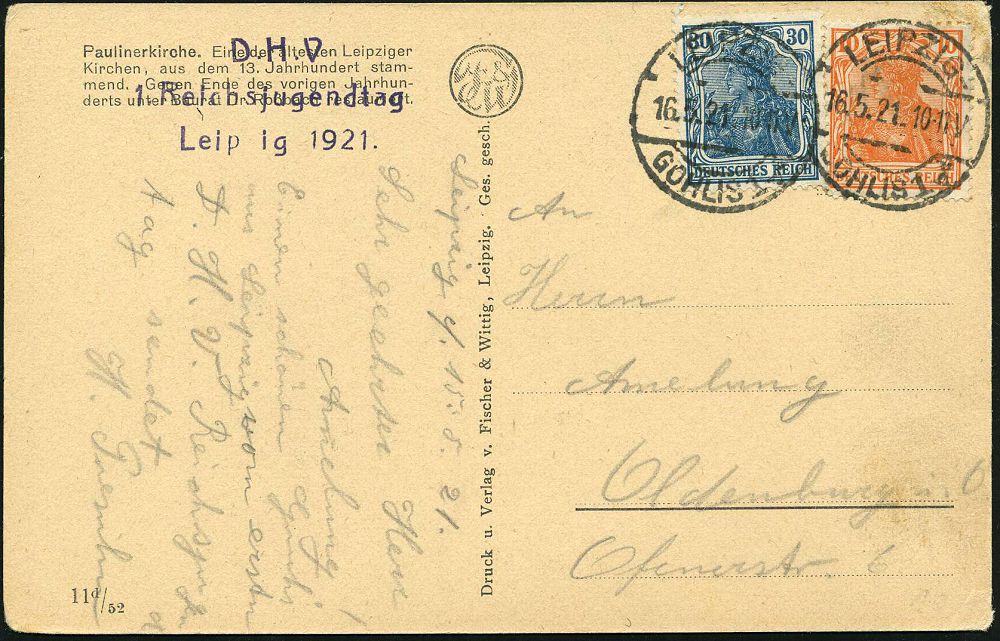 Paulinerkirche. Eine der ältesten Leipziger
Kirchen, aus dem 13. Jahrhundert stam-
mend. Gegen Ende des vorigen Jahrhun-
derts unter Baurat Roßbach restauriert.
D.H.V
1. Reichsjugendtag
Leip ig 1921.
30
30
DEUTSCHES REICH
LEIPZIG
16.5.21. 10-11V
GOHLIS 1
LEIPZIG
16.5.21. 10-11V
GOHLIS 1
Leipzig d. 15.5.21.
Sehr geehrter Herr
Amelung!
Einen schönen Gruß
aus Leipzig vom ersten
D. H. V. Reichsjugend
tag sendet
H.
Druck u. Verlag v. Fischer & Wittig, Leipzig. Ges. gesch.
An
Herrn
Amelung
Oldenburg i. O
Ofenerstr. 6
11d/52